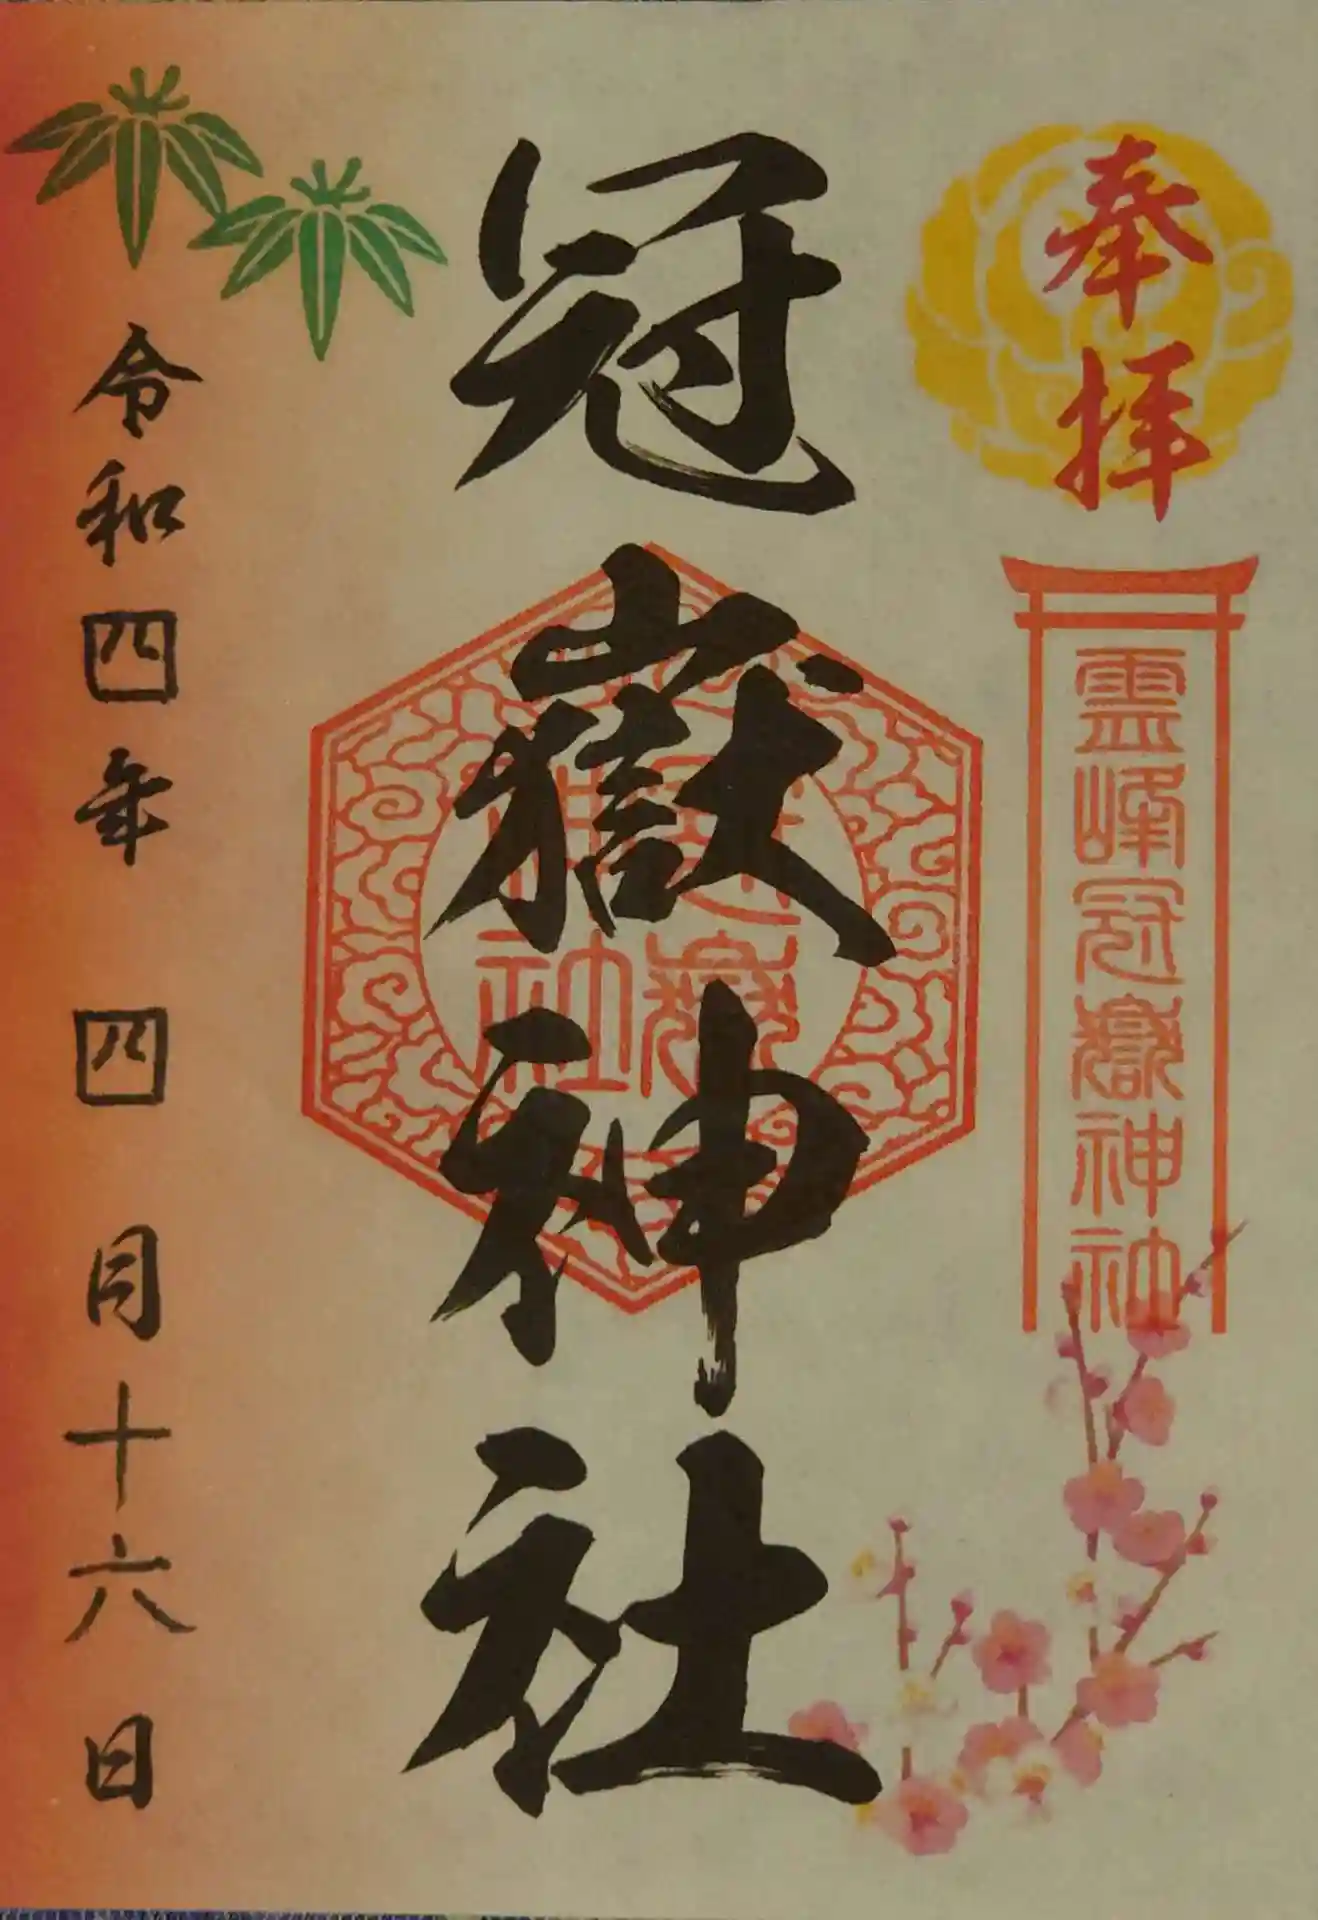 奉拝
霊峰冠嶽神社
冠嶽神社
冠嶽神社
令和四年 四月十六日